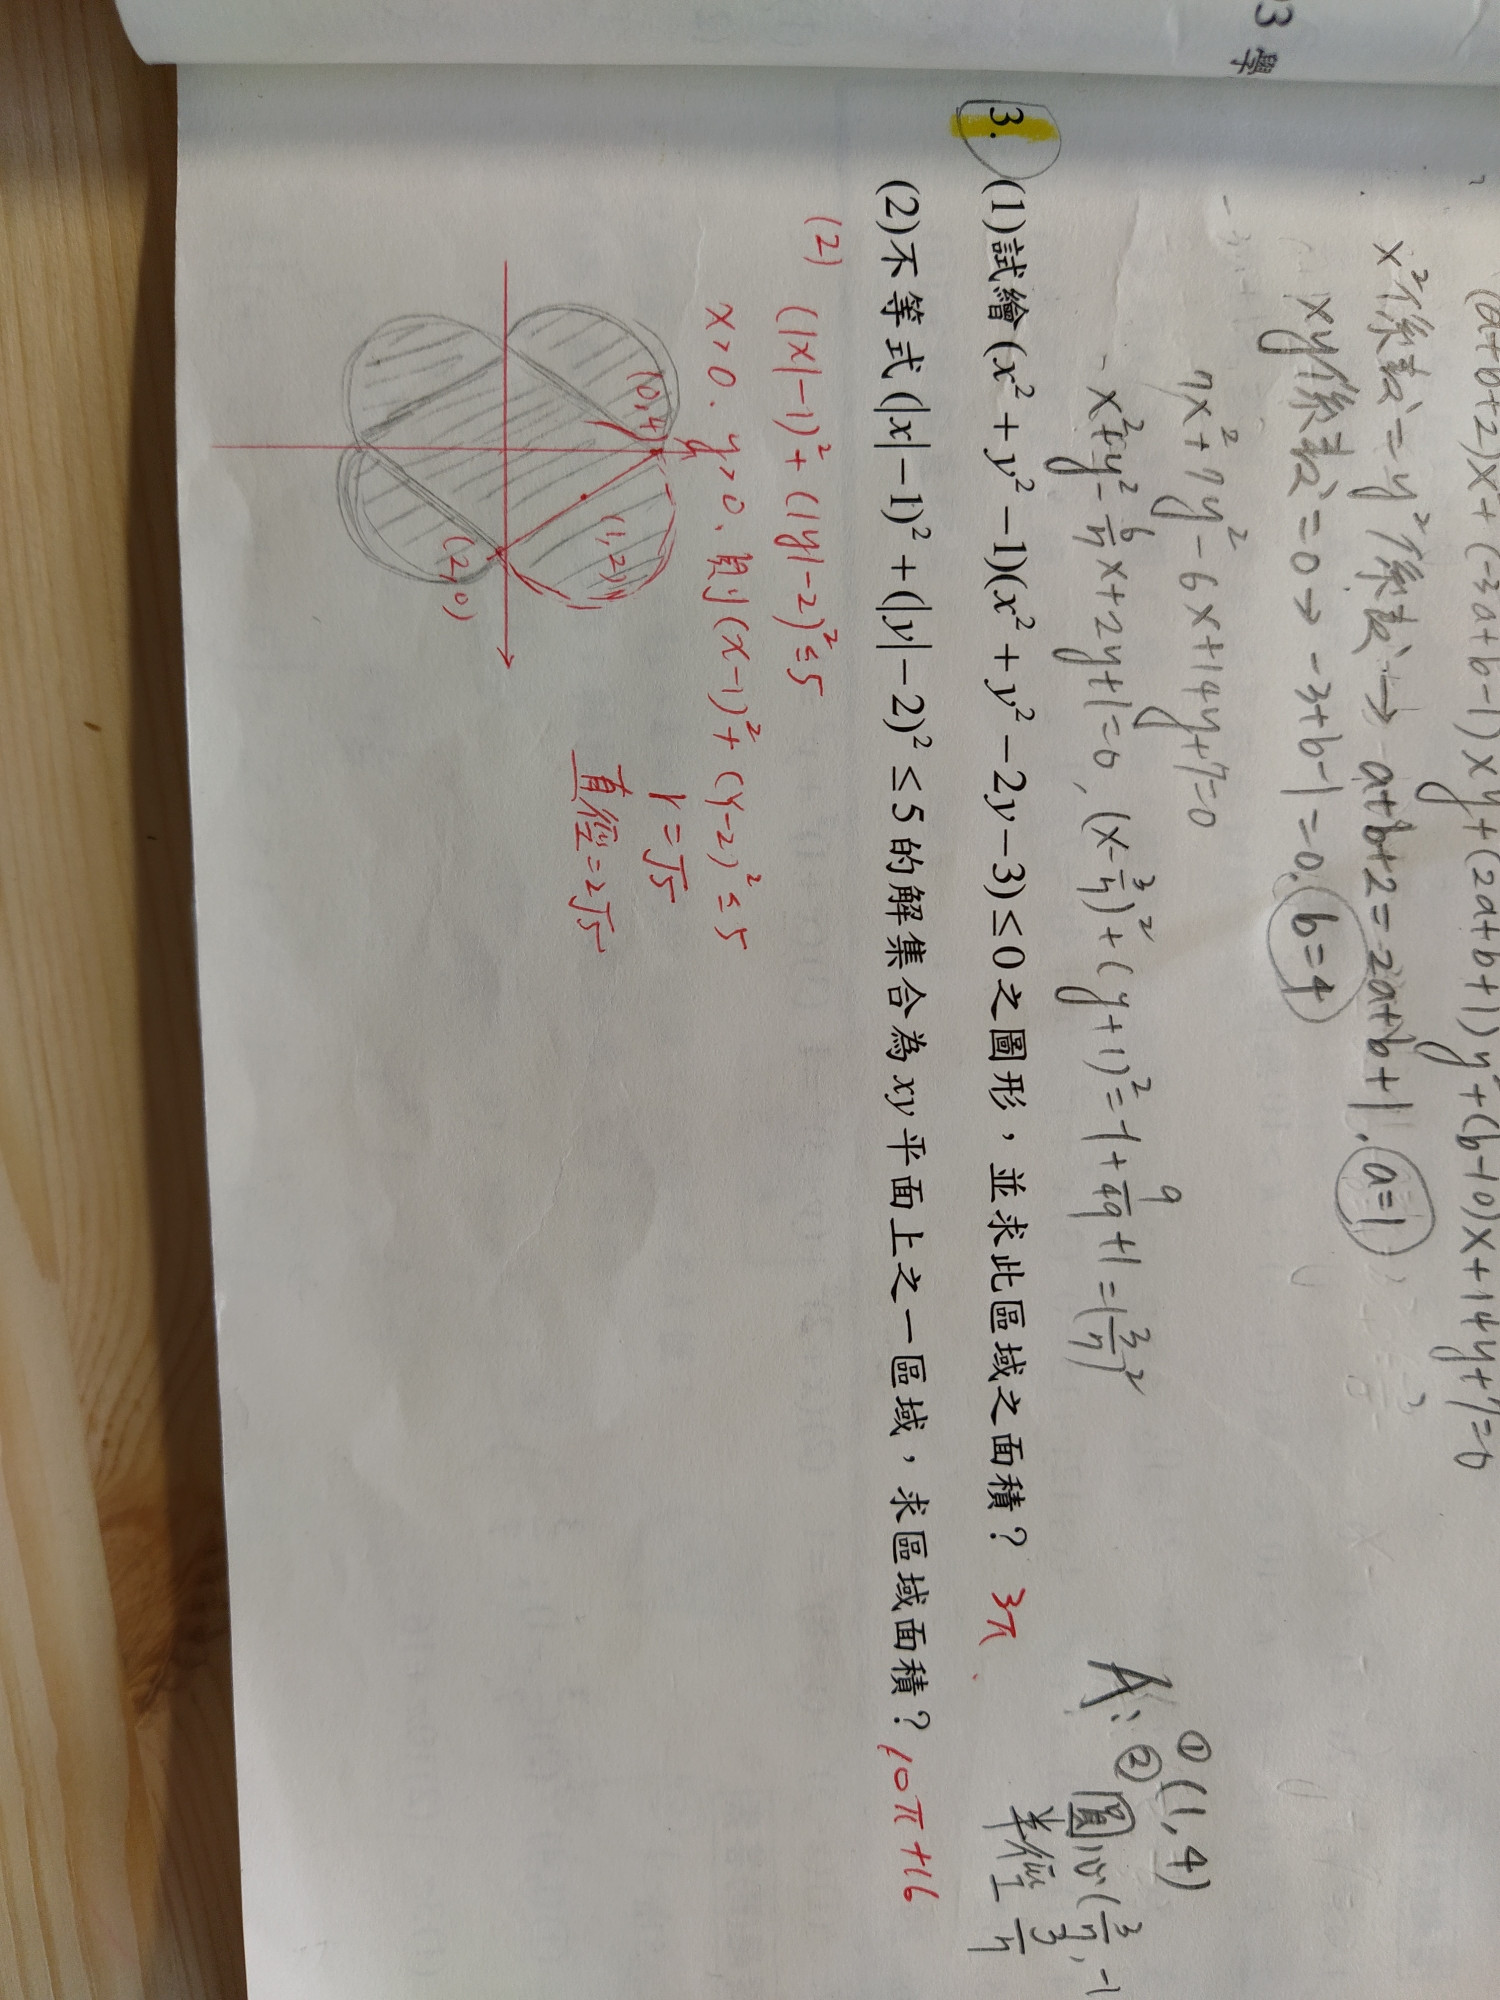 23 學
(a+b+2)x²+(-3a+b-1)xy+(2a+b+1)y²+(b-10)x+14y+7=0
x²係數=y²係數 → a+b+2=2a+b+1, a=1
xy係數=0 → -3+b-1=0, b=4
7x²+7y²-6x+14y+7=0
x²+y²-6/7x+2y+1=0, (x-3/7)²+(y+1)²=-1+9/49+1=(3/7)²
A: ① (1,4)
② 圓心(3/7,-1
半徑 3/7
3. (1)試繪(x²+y²-1)(x²+y²-2y-3)≤0之圖形，並求此區域之面積？ 3π
(2)不等式(|x|-1)²+(|y|-2)²≤5的解集合為xy平面上之一區域，求區域面積？ 10π+16
(2) (|x|-1)²+(|y|-2)²≤5
x>0, y>0, 則(x-1)²+(y-2)²≤5
r=√5
直徑=2√5
y
(0,4)
(1,2)
(2,0)